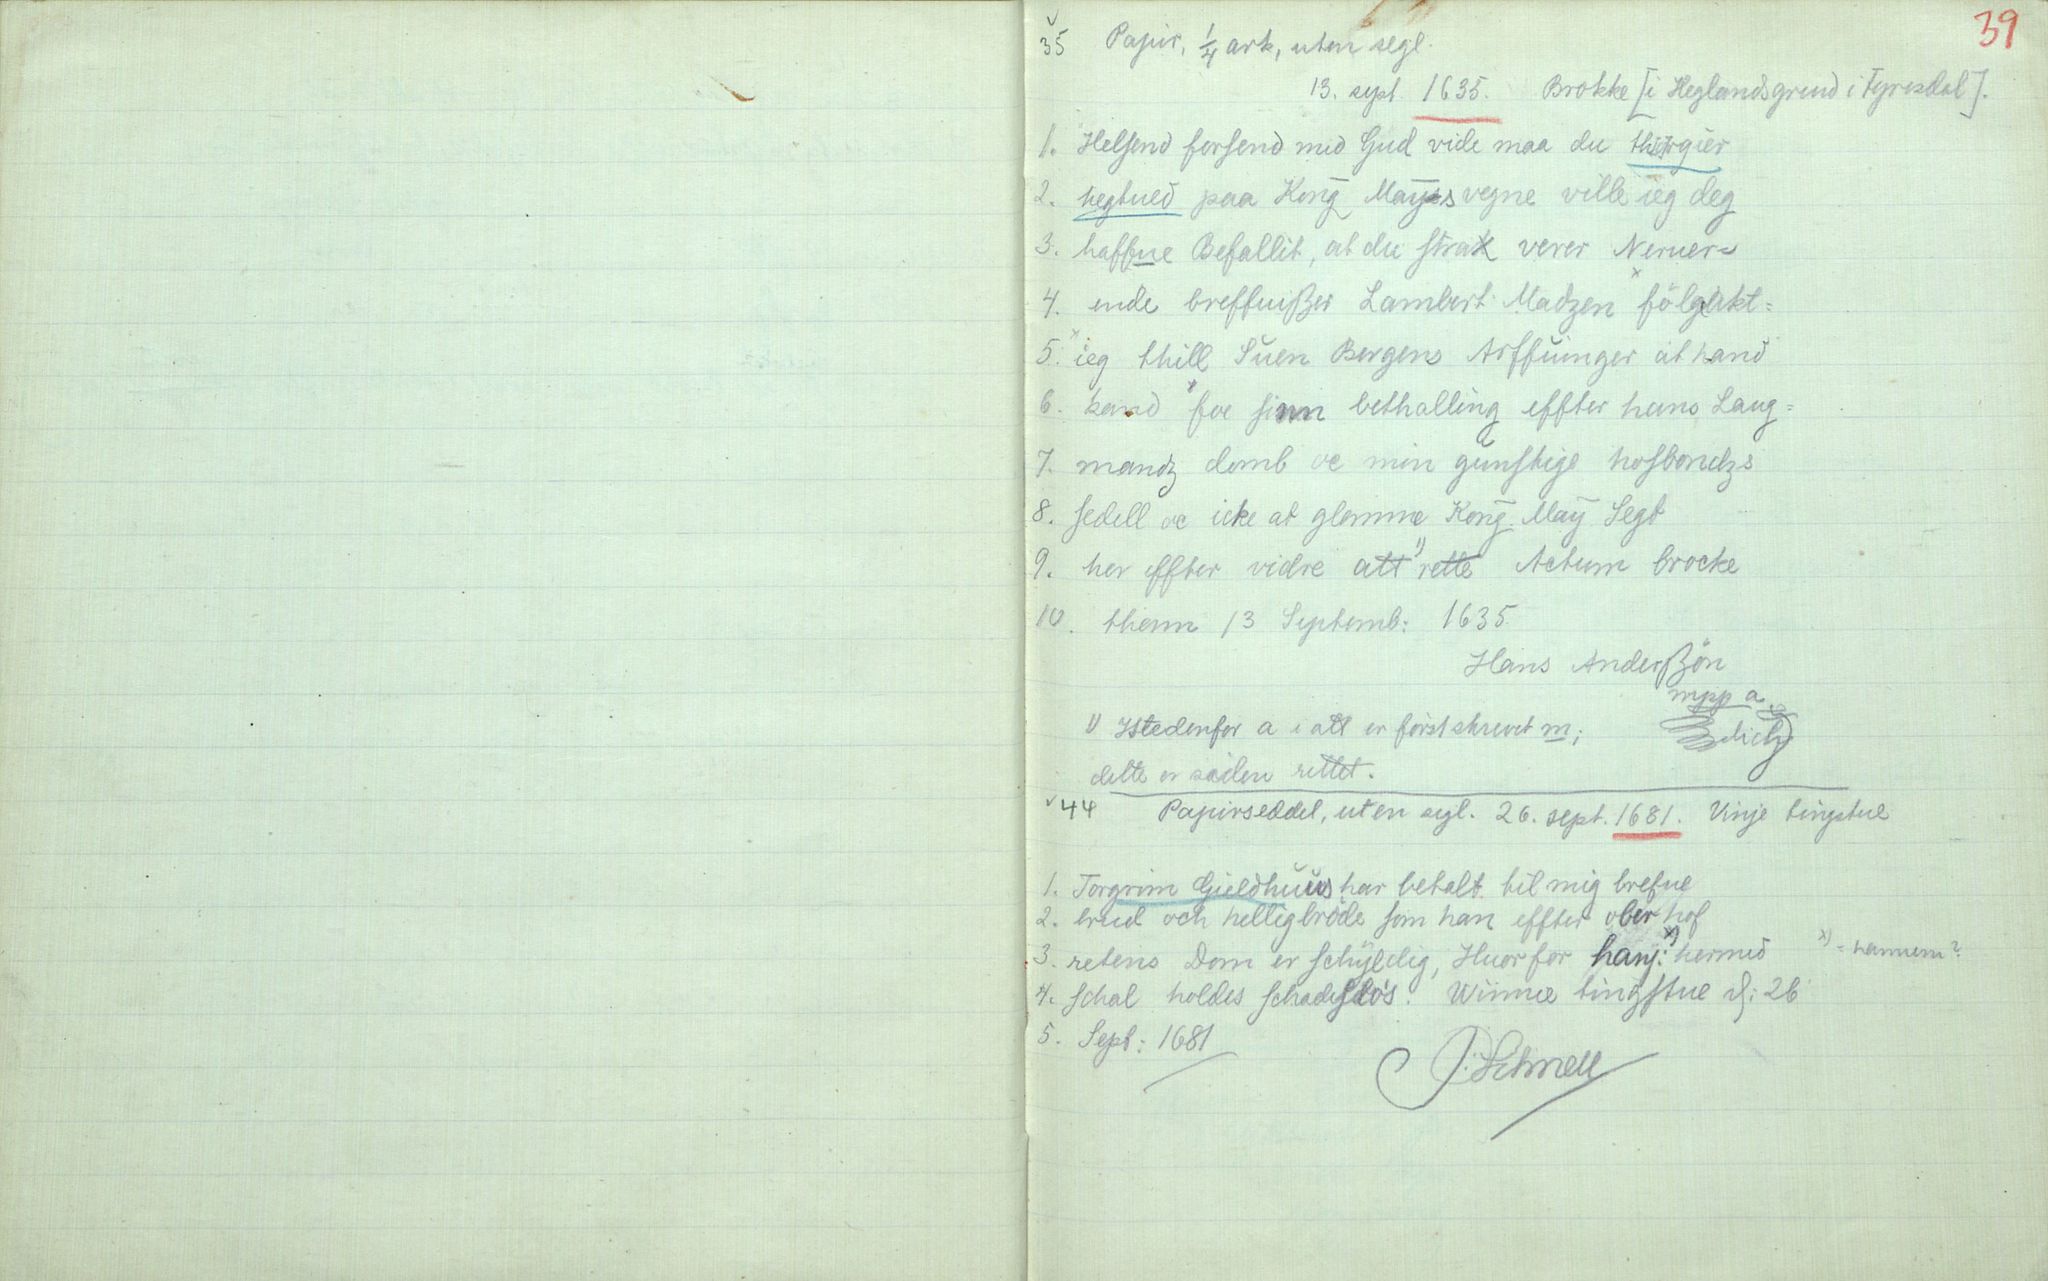 39
35 Papir, 1/4 ark, uten segl.
13. sept. 1635. Brokke [i Heglandsgrend i Fyresdal].
1. Helsend forsend med Gud vide maa du thorgier
2. hegtued paa Kong Mayss vegne ville ieg deg
3. haffue Befallit, at du strax verer Neruer=
4. ende breffuißer Lambert Madzen fölgakt=
5. ieg thill Suen Bergens Arffuinger at hand
6. kand foe sinn bethalling effter hans Laug=
7. mandz domb oc min gunstige hosbondzs
8. sedell oc icke at glemme Kong. May Segt
9. her effter vidre att 1) rette Actum brocke
10. thenn 13 Septemb: 1635
Hans Anderßön
mpp a
1) Istedenfor a i att er först skrevet m;
dette er siden rettet.
44 Papirseddel, uten segl. 26. sept. 1681. Vinje tingstue
1. Torgrim Gieldhuus har betalt til mig brefue
2. brud och helligbröde som han effter ober hof
3. retens Dom er schyldig, Huor for hanj: x) hermed x) = hannem?
4. schal holdes schadeslös. Wiinne tingstue d: 26
5. Sept: 1681
P: Schnell